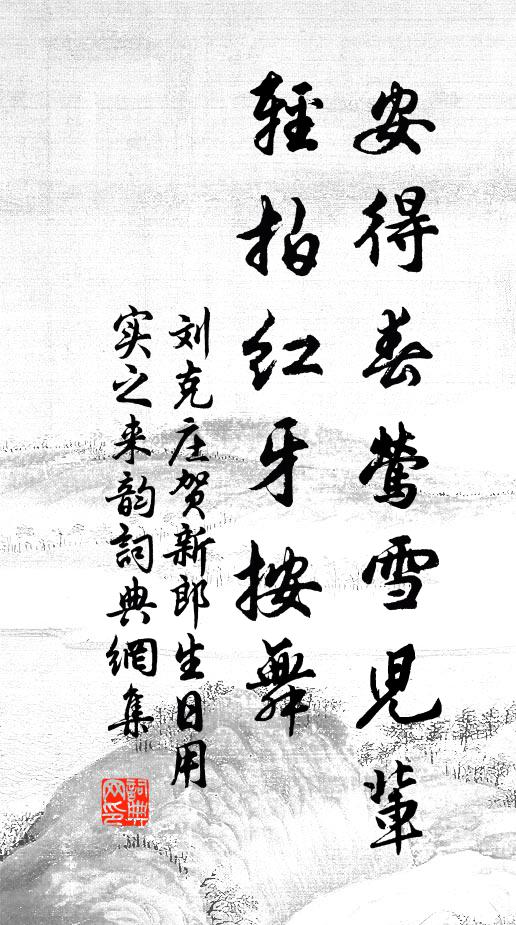 安得春莺雪兒輩
輕拍红牙按舞
刘克庄贺新郎生日用
实之来韵詞典網集
詞典
网印